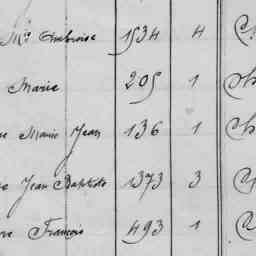 Ambroise 1534 4
Marie 205 1
Marie Jean 136 1
Jean Baptiste 1373 3
François 493 1